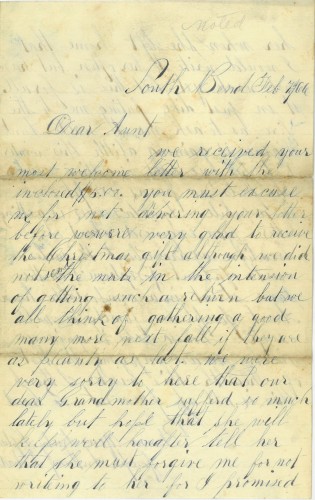 noted
South Bend Feb 2/66
Dear Aunt
we received your
most welcome letter with the
you must excuse
me for not answering your letter
before we were very glad to receive
the Christmas gift although we did
not the nuts in the intension
of getting such a return but we
all think of gathering a good
many more next fall if they are
as plenty as last. we were
very sorry to here that our
dear Grandmother sufferd so much
lately but hope that she will
keep well hereafter tell her
that she must forgive me for not
writing to her for I promised